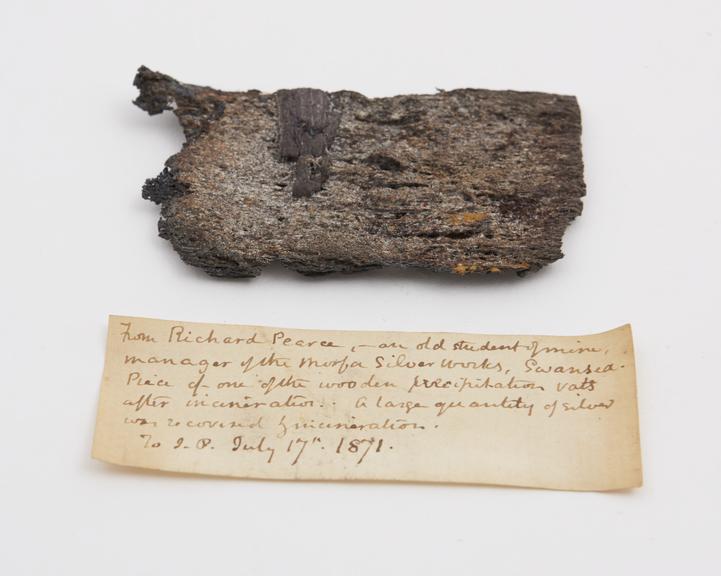 From Richard Pearce, – an old student of mine,
manager of the Morfa Silver Works, Swansea.
Piece of one of the wooden precipitation vats
after incineration. A large quantity of silver
was recovered by incineration.
To J. P. July 17th. 1871.